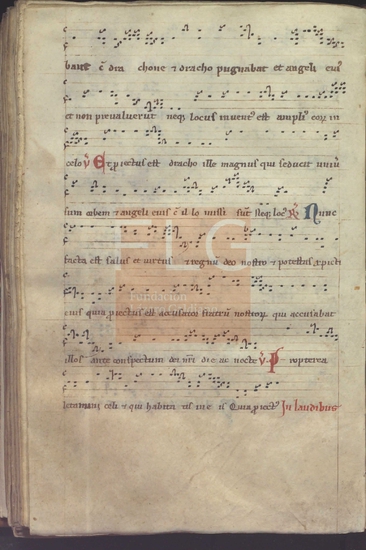 bant c̄ dra chone ⁊ dracho pugnabat et angeli eiꝰ
et non preualuerut neqꝫ locus inuentꝰ est ampliꝰ eoꝝ in
celo ℣ Et ꝓiectus est dracho ille magnus qui seducit uniũ
sum orbem ⁊ angeli eius c̄ illo missi sũt Neqꝫ locꝰ ℟ Nunc
facta est salus et uirtus ⁊ regnũ deo nostro ⁊ potestas xp̄i
eius quia ꝓiectus est accusator fratrũ nostroꝝ qui accusabat
illos ante conspectum dei nr̄i die ac nocte ℣ Propterea
letamini celi ⁊ qui habita tis in e is Quia ꝓiectꝰ In laudibus
FLG
Fundación